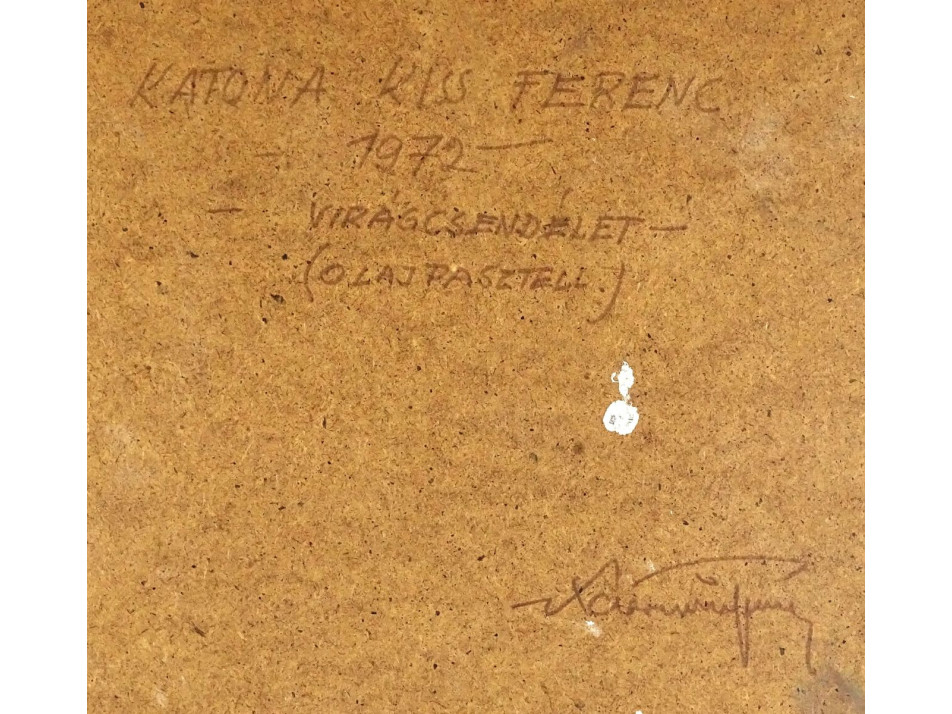 KATONA KISS FERENC
- 1972 -
- VIRÁGCSENDÉLET -
(OLAJPASZTELL.)